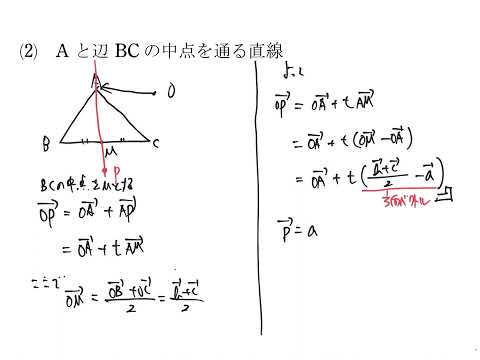 (2) A と辺 BC の中点を通る直線
A
O
B
C
M
P
BCの中点をMとする
\vec{OP} = \vec{OA} + \vec{AP}
= \vec{OA} + t\vec{AM}
ここで
\vec{OM} = \frac{\vec{OB}+\vec{OC}}{2} = \frac{\vec{b}+\vec{c}}{2}
よって
\vec{OP} = \vec{OA} + t\vec{AM}
= \vec{OA} + t(\vec{OM} - \vec{OA})
= \vec{OA} + t(\frac{\vec{b}+\vec{c}}{2} - \vec{a})
方向ベクトル
\vec{p} = a